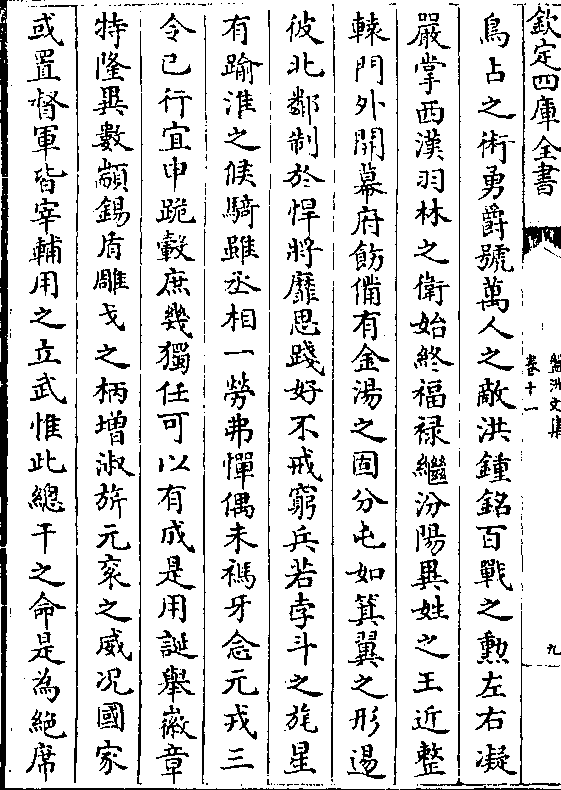 欽定四庫全書
盤洲文集
卷十一
九
鳥占之術勇爵號萬人之敵洪鍾銘百戰之勲左右凝
嚴掌西漢羽林之衛始終福禄繼汾陽異姓之王近整
轅門外開幕府飭備有金湯之固分屯如箕翼之形逷
彼北鄰制於悍將靡思踐好不戒窮兵若孛斗之旄星
有踰淮之候騎雖丞相一勞弗憚偶未禡牙念元戎三
令已行宜申跪轂庶幾獨任可以有成是用誕舉徽章
特隆異數顓錫盾雕戈之柄增淑旂元衮之威况國家
或置督軍皆宰輔用之立武惟此總干之命是為絶席